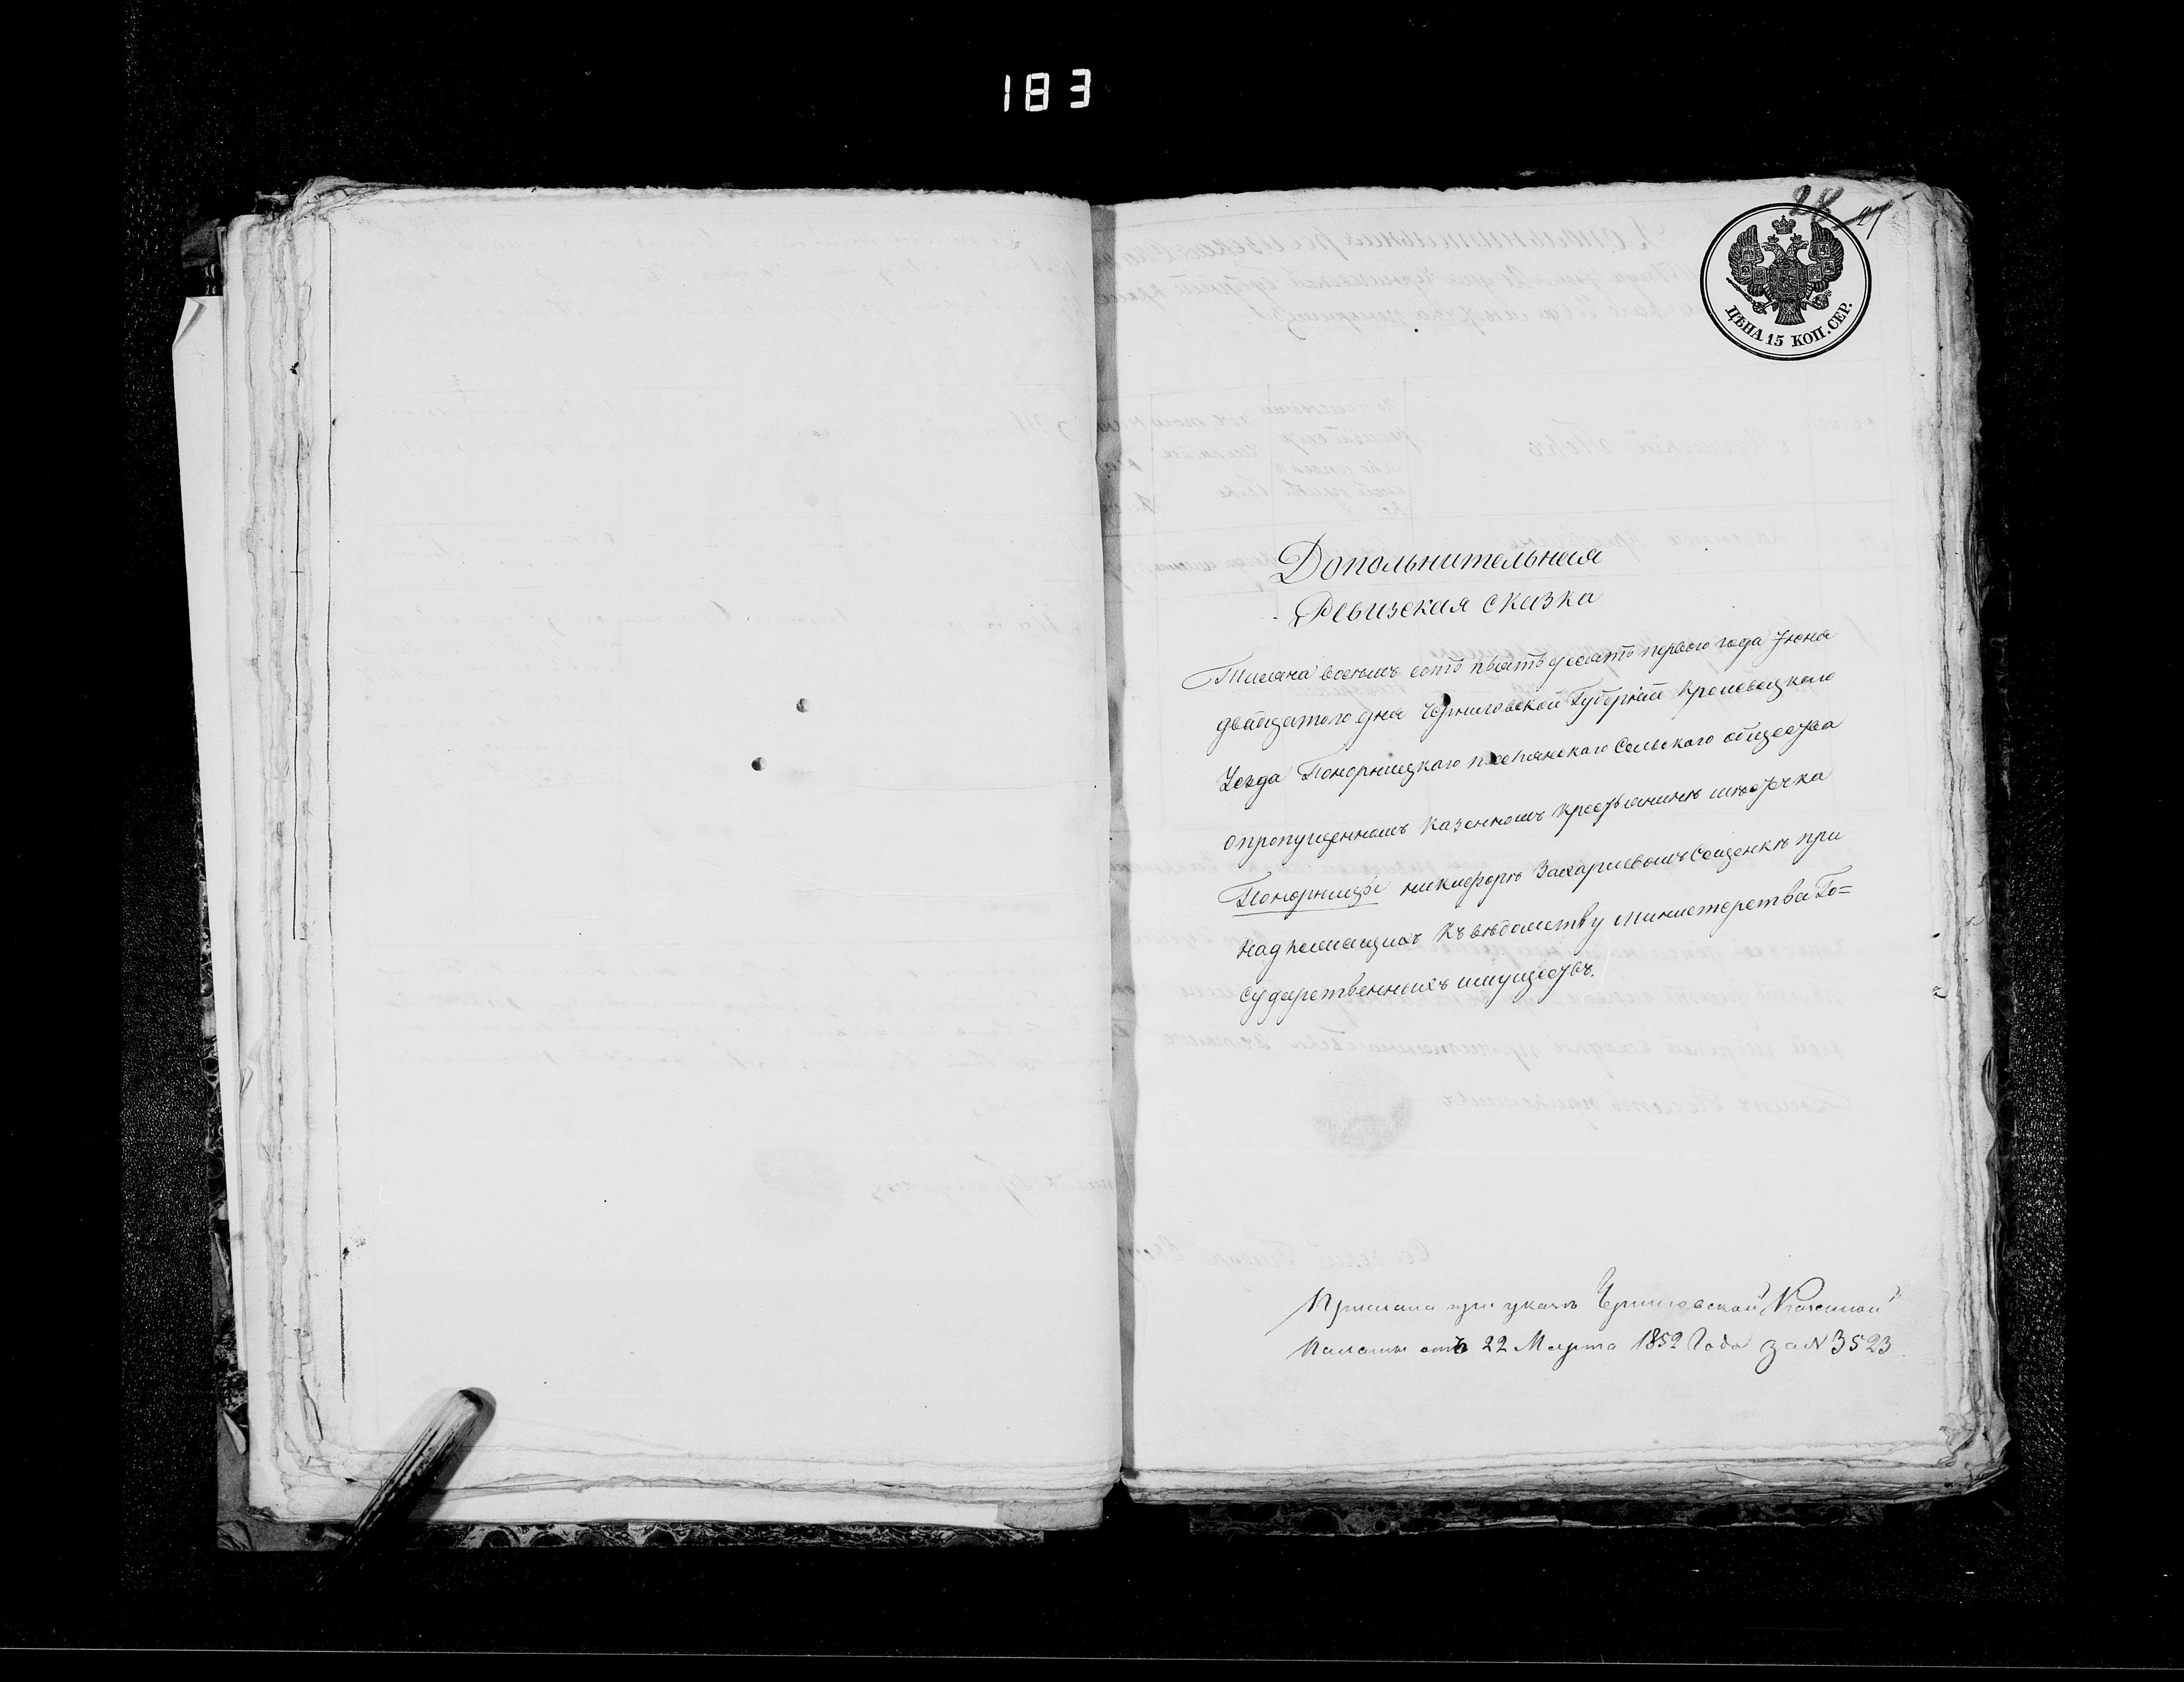 183
28 27
ЦѢНА 15 КОП. СЕР.
Допольнительная
Ревизская сказка
Тысяча восемь сотъ пятьдесятъ первого года Іюня
двадцатого дня Черниговской Губерніи Кролевецкаго
Уезда Понорницкаго поселянскаго Сельскаго общества
опропущенномъ казенномъ крестьянине местечка
Понорницы никифоре Захарьевомъ Сещенке при
надлежащихъ къ вѣдомству министерства Го=
сударственныхъ имуществъ.
Прислана при указе Черниговской Казенной
Палаты отъ 22 Марта 1852 Года за N 3523